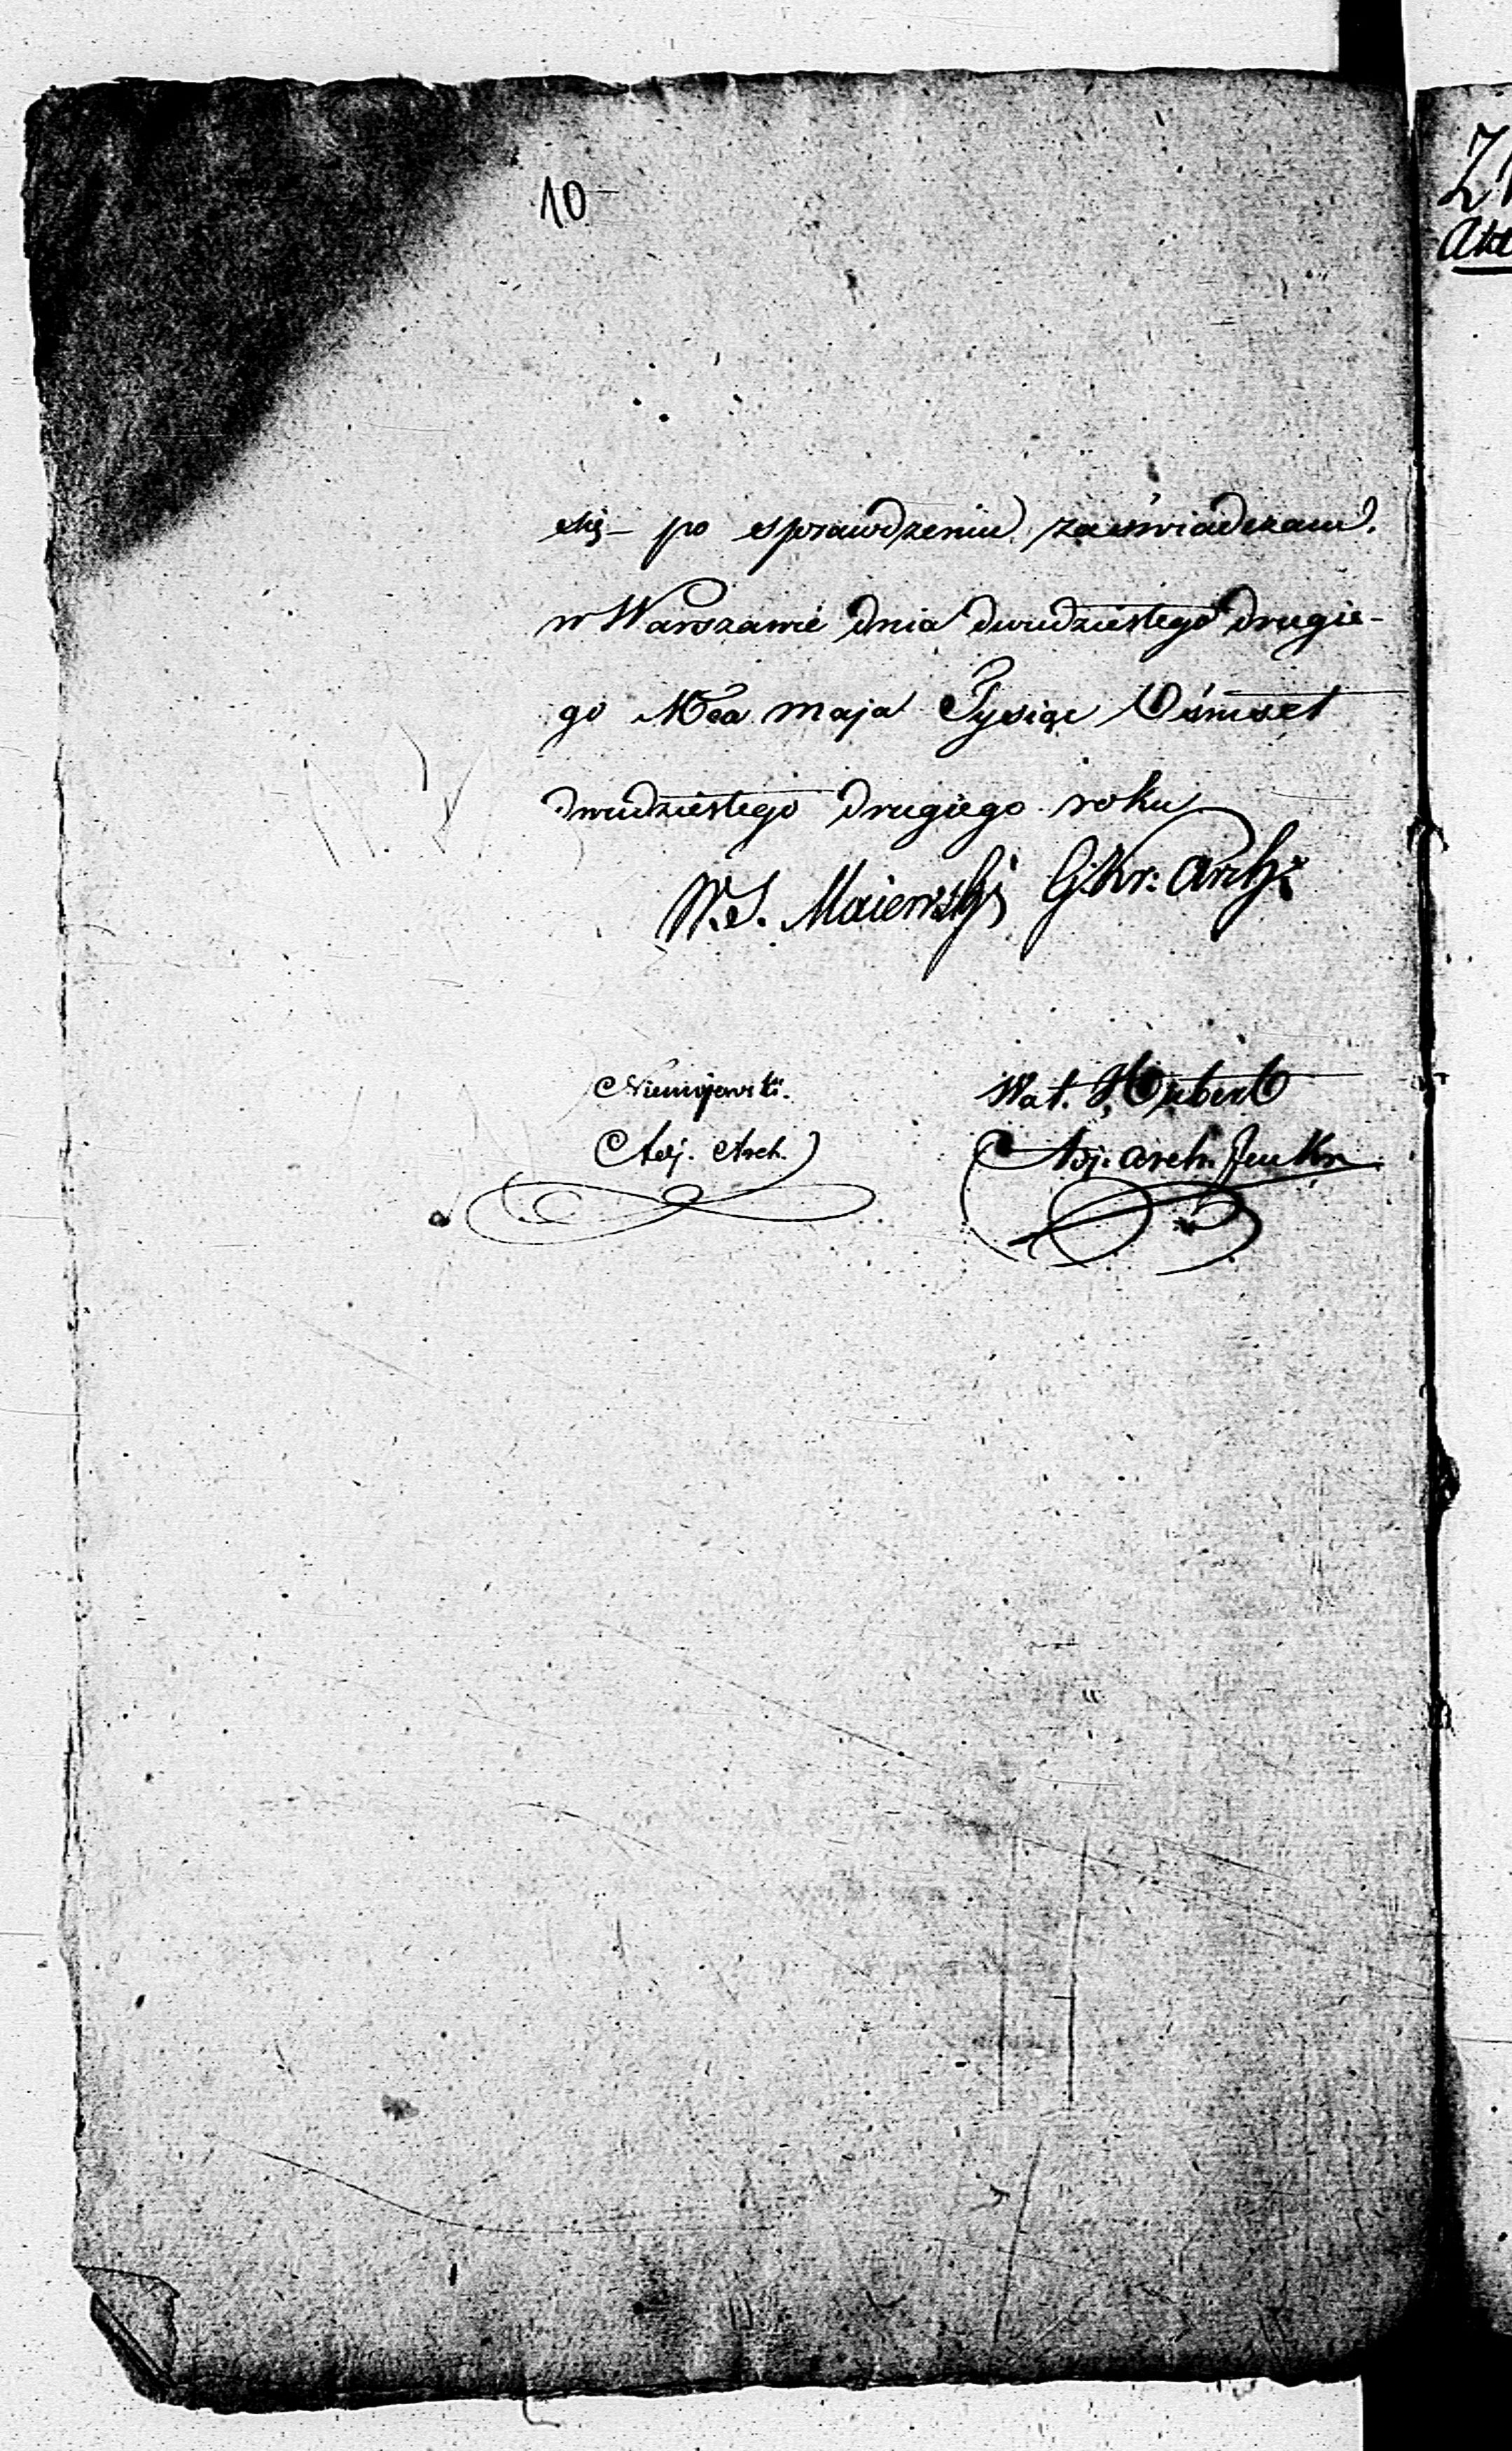 10
się – po sprawdzeniu zaświadczam.
w Warszawie dnia dwudziestego drugie-
go Mca maja Tysiąc Ośmset
dwudziestego drugiego roku
W. S. Maiewski G. Kr: Arch:
Niemojewski. Wal. Hubert
Adj. Arch. Adj. arch.